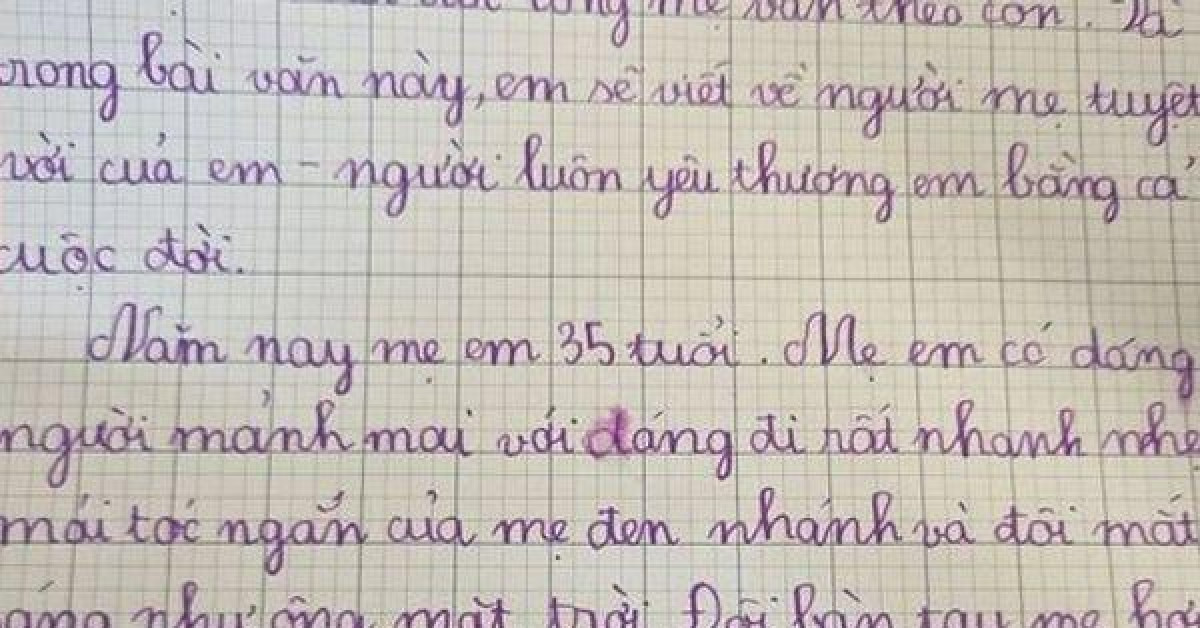 mẹ vẫn theo con. Và
trong bài văn này, em sẽ viết về người mẹ tuyệt
vời của em - người luôn yêu thương em bằng cả
cuộc đời.
Năm nay mẹ em 35 tuổi. Mẹ em có dáng
người mảnh mai với dáng đi rất nhanh nhẹ
mái tóc ngắn của mẹ đen nhánh và đôi mắt
như ông mặt trời Đôi bàn tay mẹ